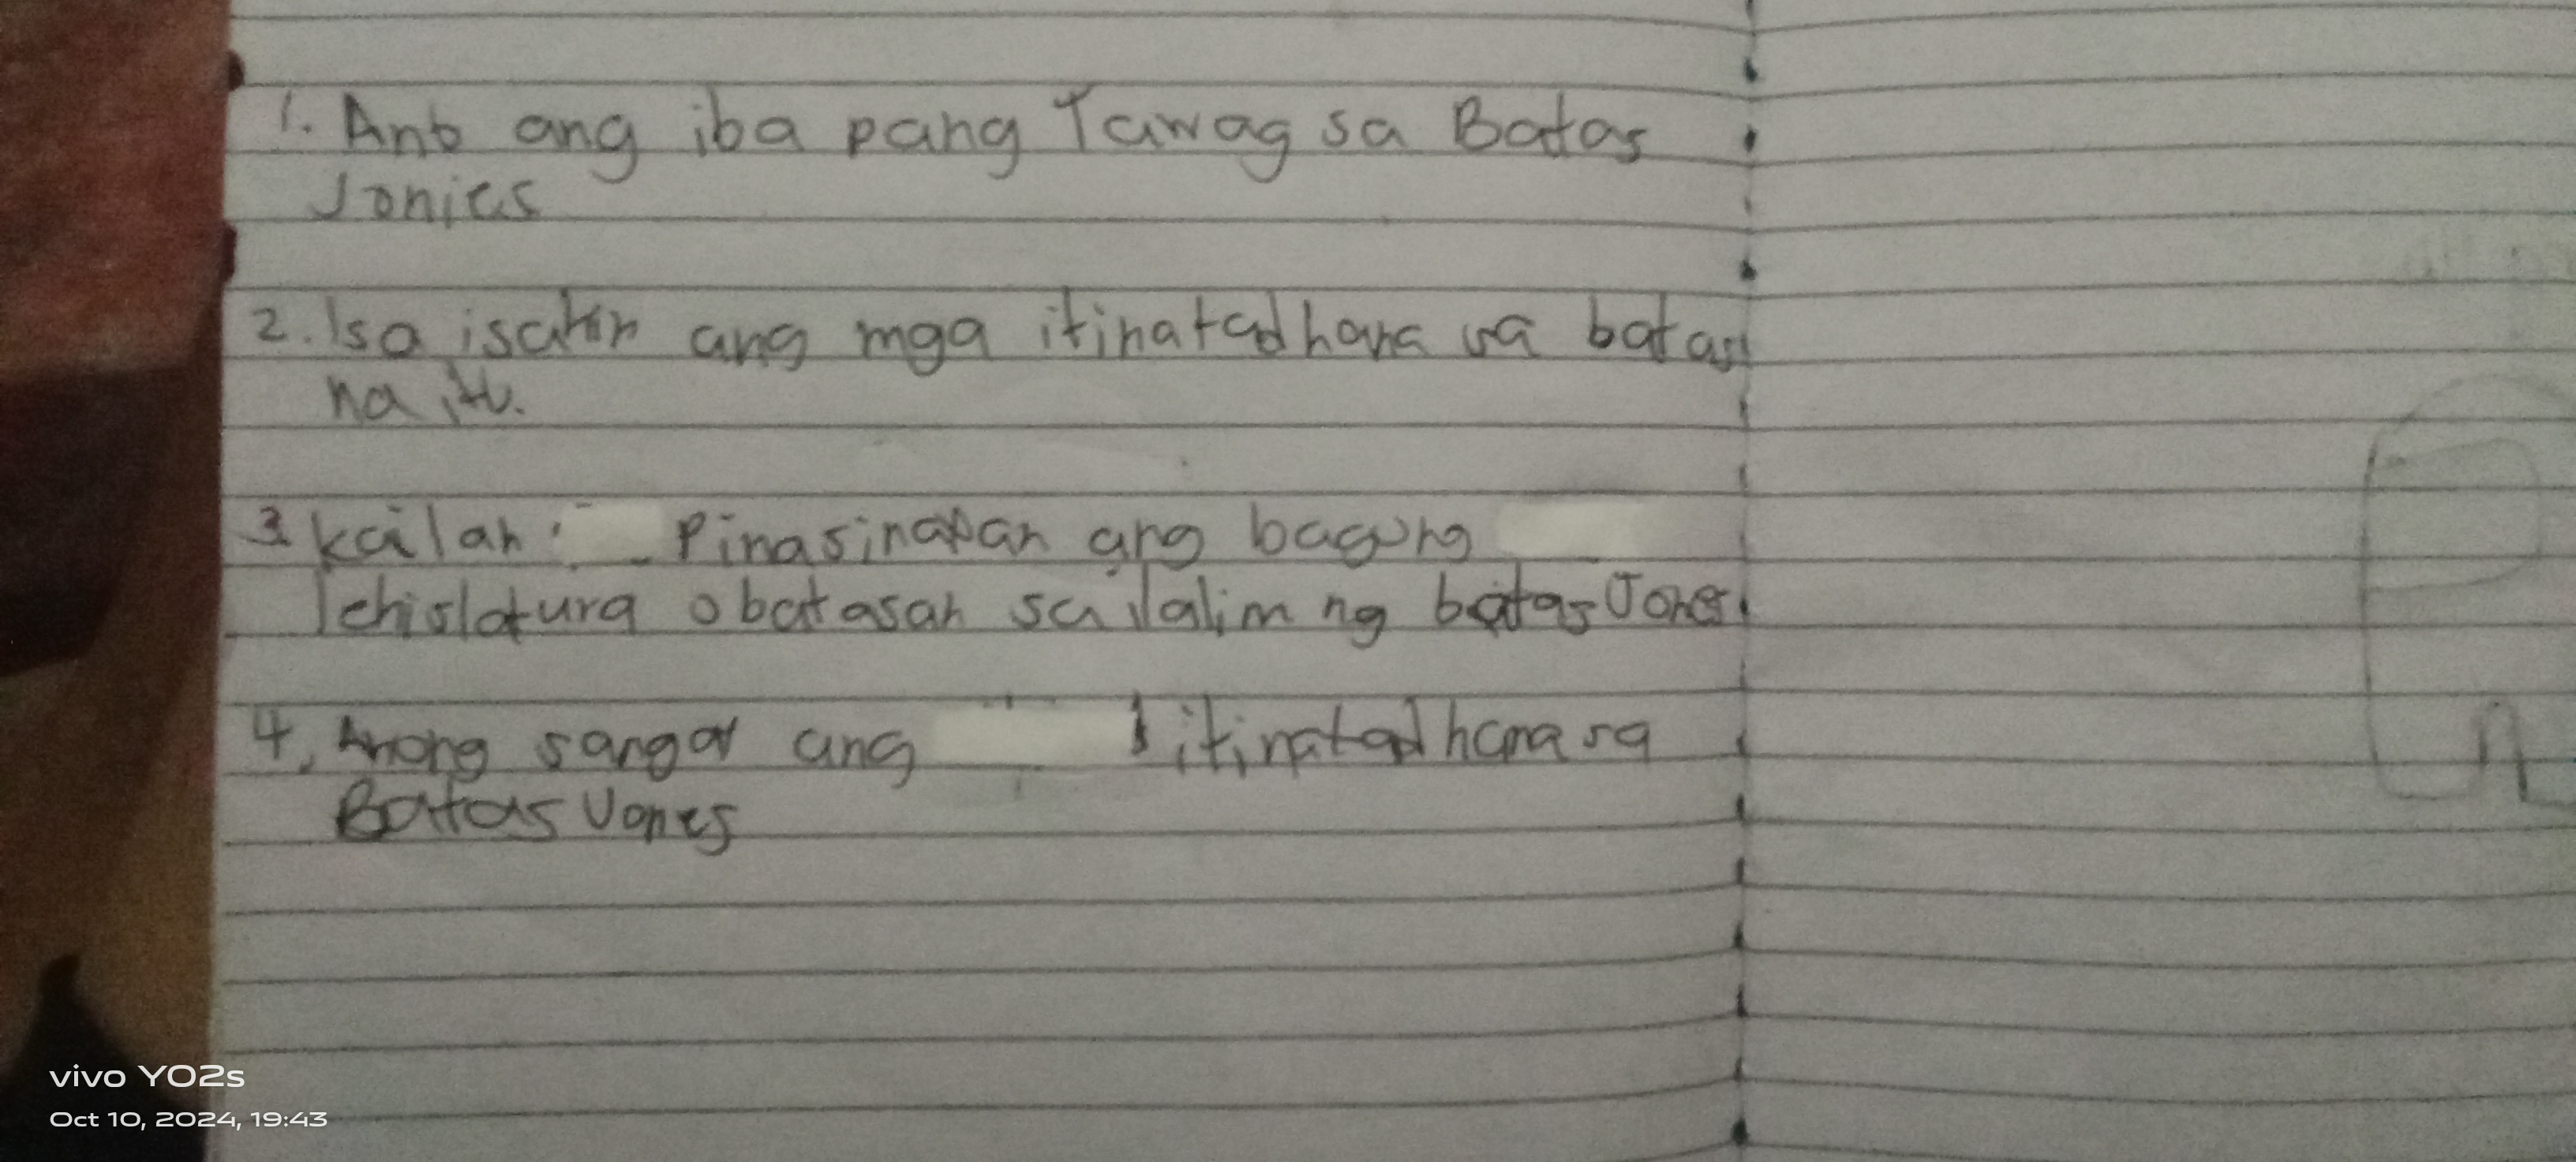 1. Ano ang iba pang Tawag sa Batas
Jonies
2. Isa isahin ang mga itinatadhana sa batas
na ito.
3 kailan Pinasinayan ang bagong
lehislatura o batasan sa ilalim ng batas Jones.
4. Anong sangay ang itinatadhana sa
Batas Jones
vivo Y02s
Oct 10, 2024, 19:43